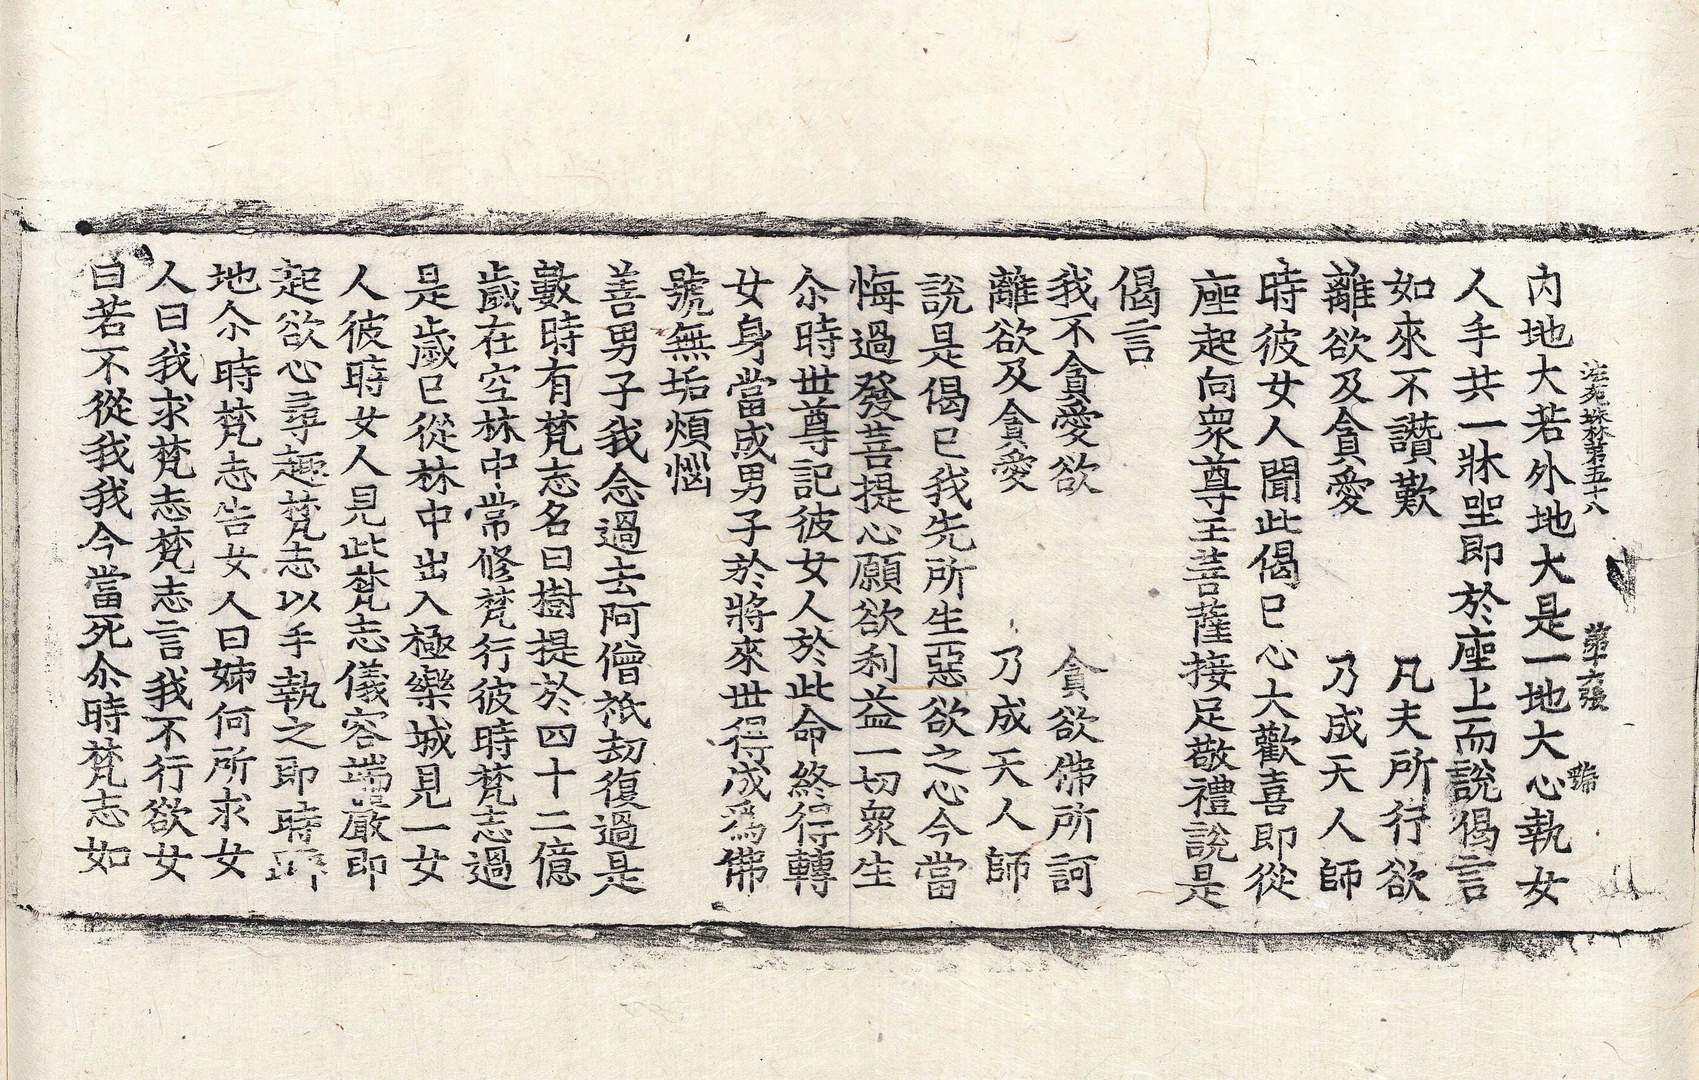 法苑珠林第五十八 第十六張 蹄
内地大若外地大是一地大心執女
人手共一牀坐即於座上而說偈言
如來不讚歎 凡夫所行欲
離欲及貪愛 乃成天人師
時彼女人聞此偈已心大歡喜即從
座起向衆尊王菩薩接足敬禮說是
偈言
我不貪愛欲 貪欲佛所訶
離欲及貪愛 乃成天人師
說是偈已我先所生惡欲之心今當
悔過發菩提心願欲利益一切衆生
尒時世尊記彼女人於此命終得轉
女身當成男子於將來世得成爲佛
號無垢煩惱
善男子我念過去阿僧祇劫復過是
數時有梵志名曰樹提於四十二億
歲在空林中常修梵行彼時梵志過
是歲已從林中出入極樂城見一女
人彼時女人見此梵志儀容端嚴即
起欲心尋趣梵志以手執之即時躃
地尒時梵志告女人曰姊何所求女
人曰我求梵志梵志言我不行欲女
曰若不從我我今當死尒時梵志如